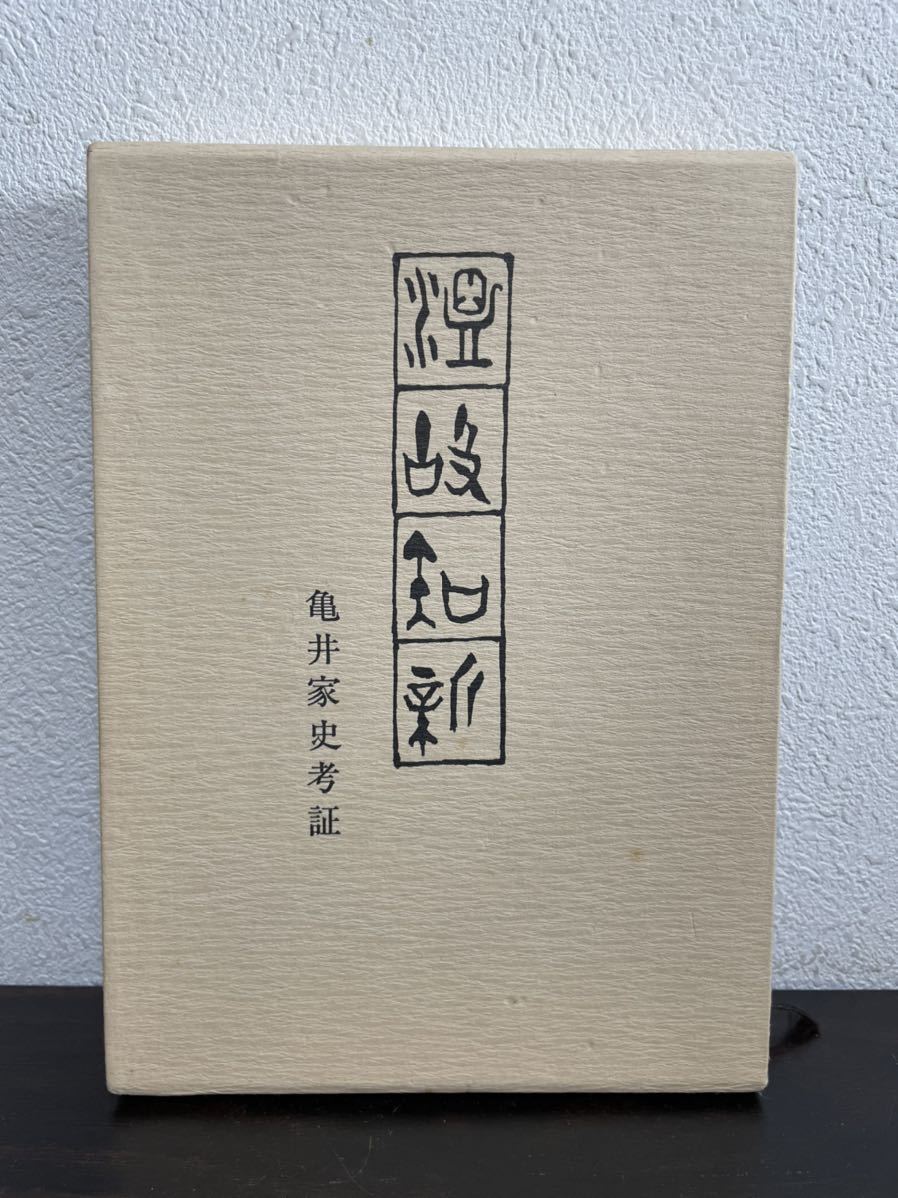 温故知新
亀井家史考証